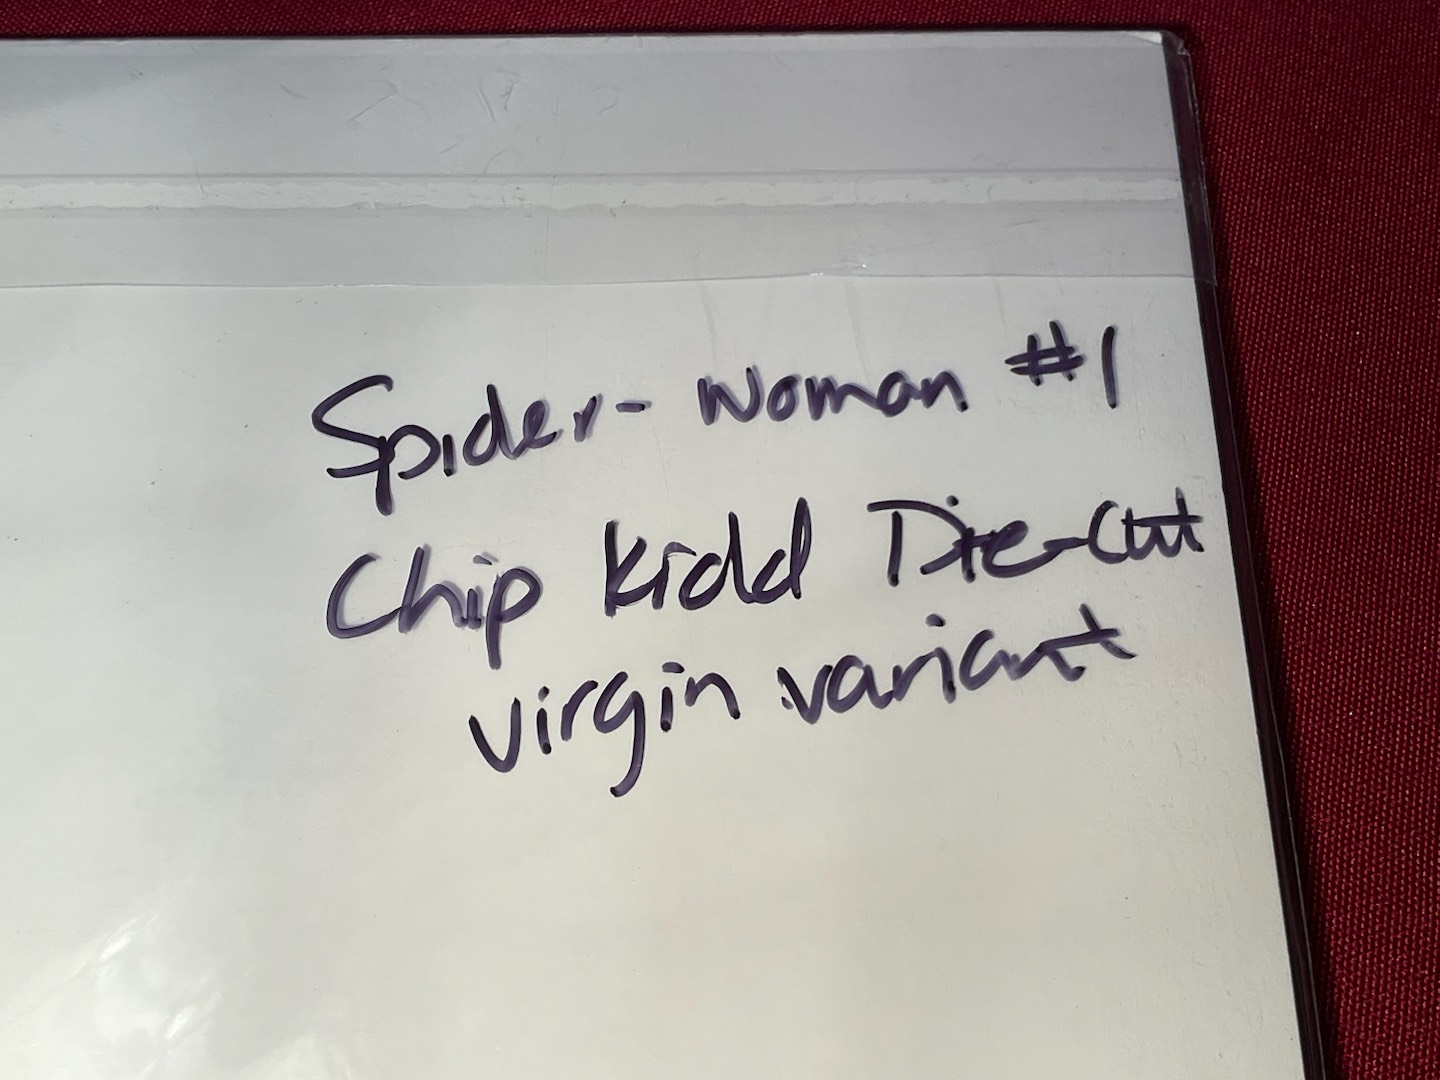 Spider-Woman #1
Chip Kidd Die-Cut
virgin variant